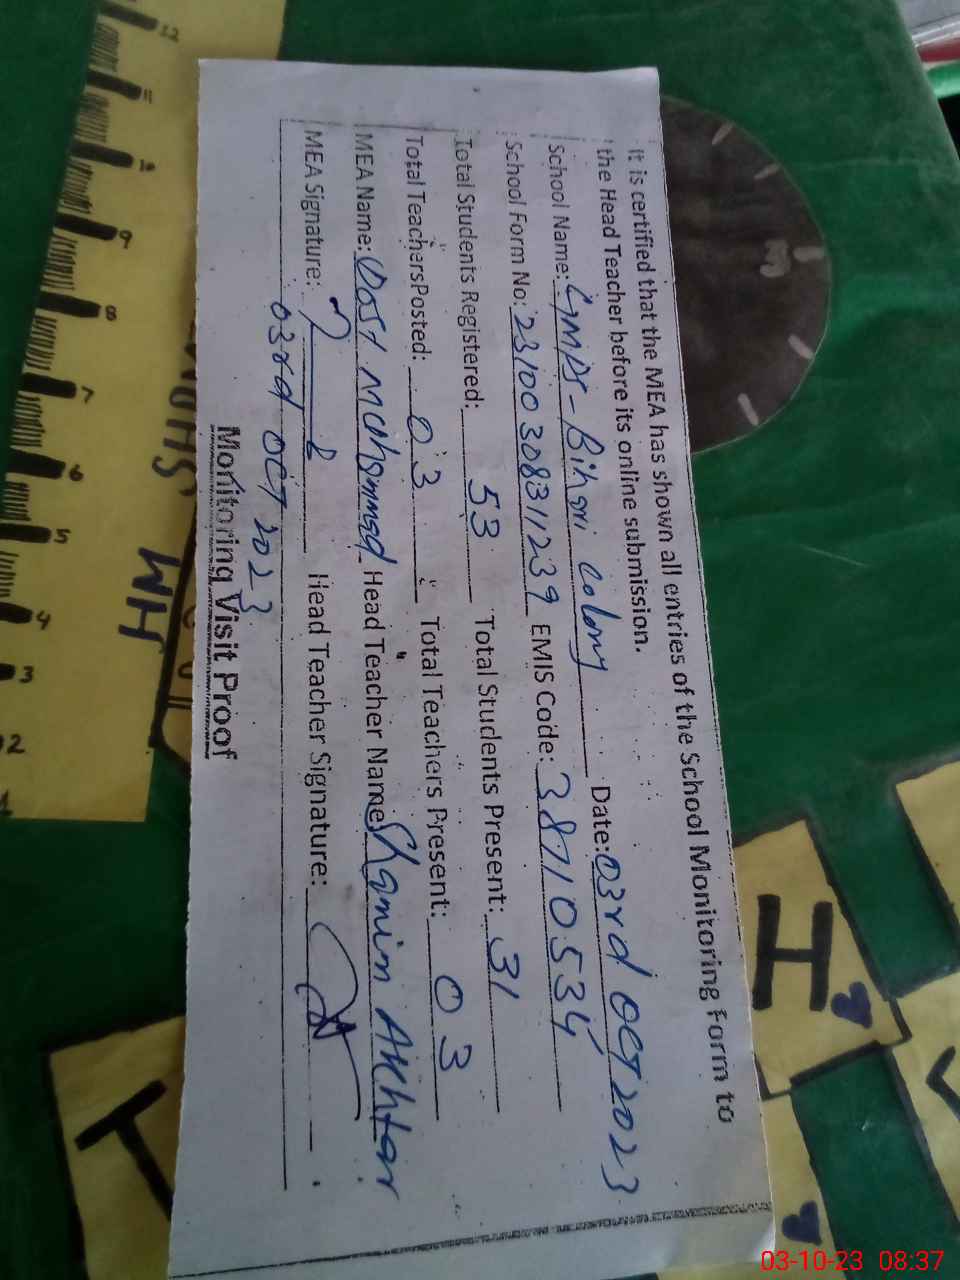 It is certified that the MEA has shown all entries of the School Monitoring Form to
the Head Teacher before its online submission.
School Name: GMPS-Bihari colony Date: 03rd OCT 2023
School Form No: 23100308311239 EMIS Code: 38710534
Total Students Registered: 53 Total Students Present: 31
Total Teachers Posted: 03 Total Teachers Present: 03
MEA Name: Dost Mohammad Head Teacher Name: Shamim Akhtar
MEA Signature: Head Teacher Signature:
03rd OCT 2023
Monitoring Visit Proof
12
11
10
9
8
7
6
5
4
3
2
WH
H
T
03-10-23 08:37